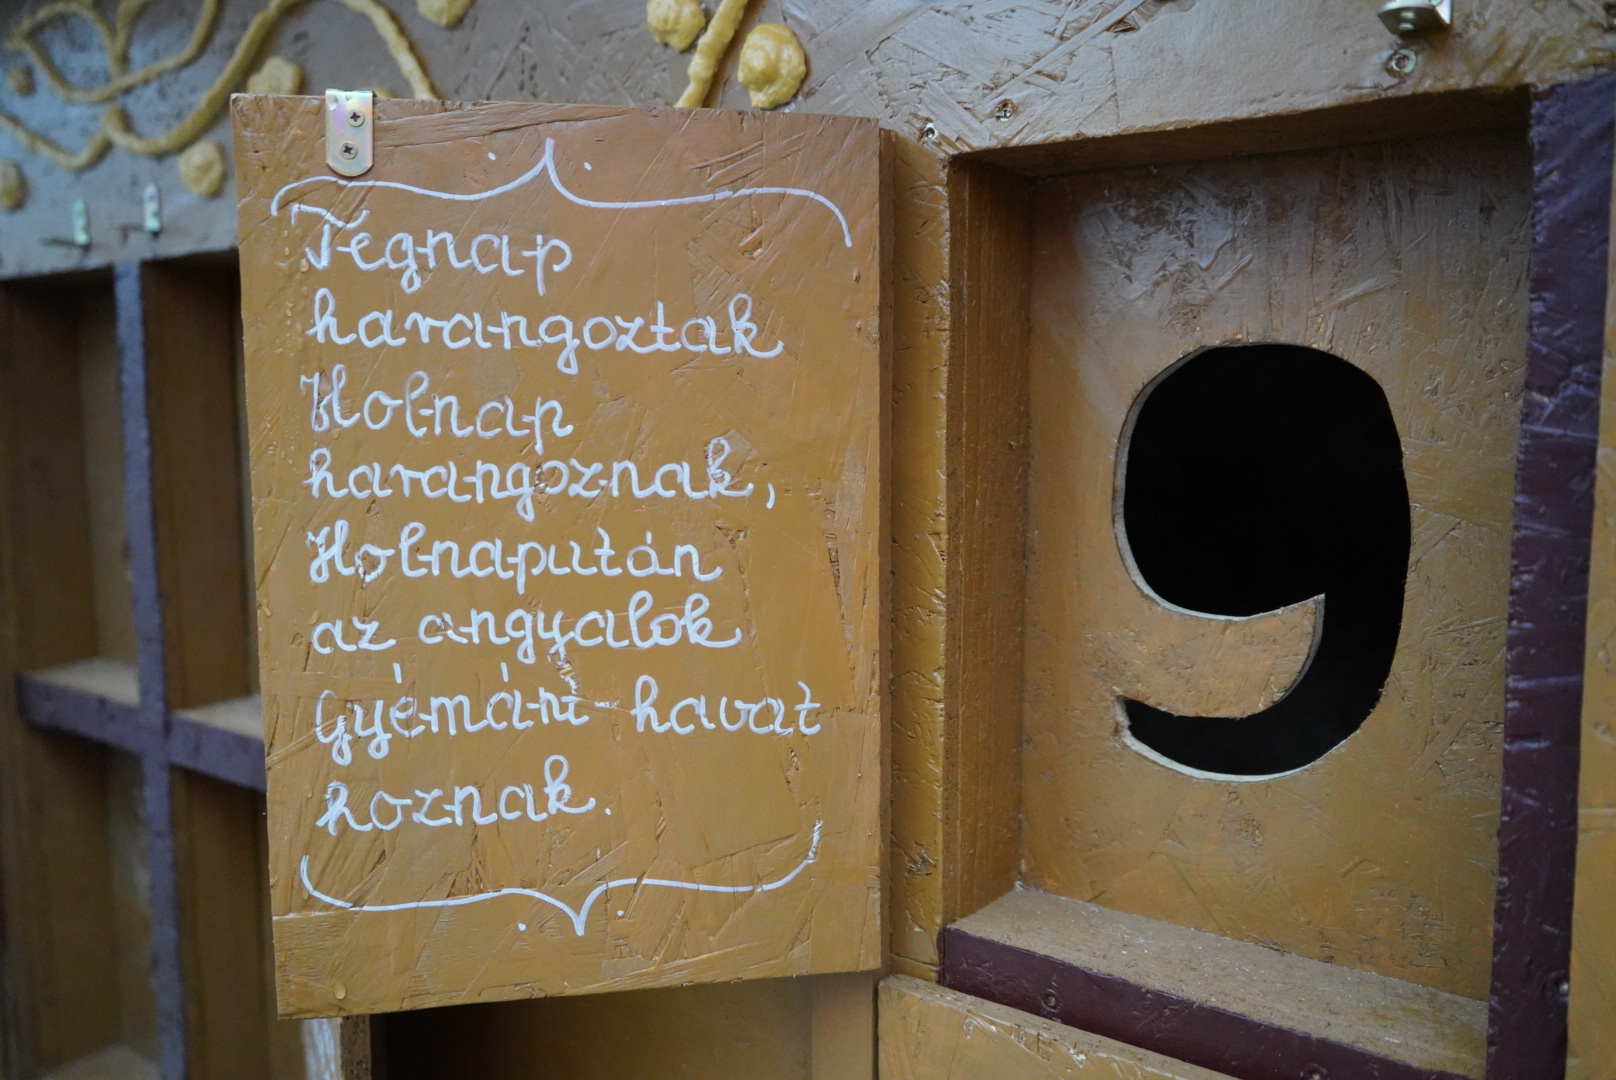 Tegnap
harangoztak
Holnap
harangoznak,
Holnapután
az angyalok
Gyémánt-havat
hoznak.
9